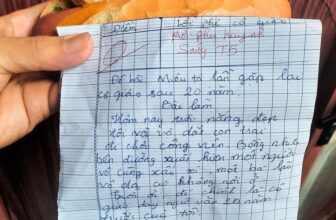 Điểm
Lời phê cô giáo
Mời phụ huynh
Sáng T5
Đề bài Miêu tả lần gặp lại
cô giáo sau 20 năm
Bài làm
Hôm nay trời nắng đẹp
tôi và vợ dắt con trai
đi chơi công viên. Bỗng nhiên
bên đường xuất hiện một người
vô cùng xấu xí, một bà lão
và dạ cư không nổi
là cô
giáo dạy 20 năm
trước của tôi